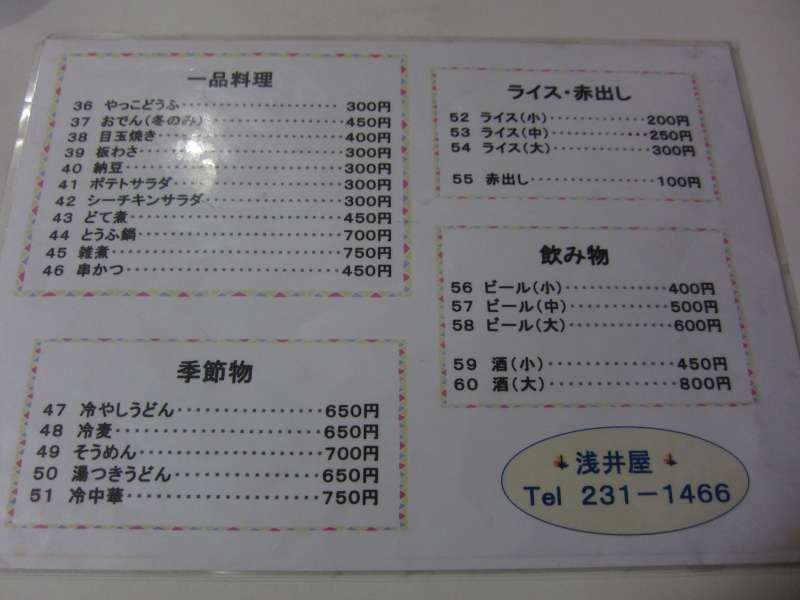 一品料理
36 やっこどうふ・・・・・・・・・・・・・・・・・・・・ 300円
37 おでん(冬のみ)・・・・・・・・・・・・・・・・・・ 450円
38 目玉焼き・・・・・・・・・・・・・・・・・・・・・・・ 400円
39 板わさ・・・・・・・・・・・・・・・・・・・・・・・・・ 300円
40 納豆・・・・・・・・・・・・・・・・・・・・・・・・・・・ 300円
41 ポテトサラダ・・・・・・・・・・・・・・・・・・・・・ 300円
42 シーチキンサラダ・・・・・・・・・・・・・・・・・ 300円
43 どて煮・・・・・・・・・・・・・・・・・・・・・・・・・ 450円
44 とうふ鍋・・・・・・・・・・・・・・・・・・・・・・・・ 700円
45 雑煮・・・・・・・・・・・・・・・・・・・・・・・・・・・ 750円
46 串かつ・・・・・・・・・・・・・・・・・・・・・・・・・ 450円
季節物
47 冷やしうどん・・・・・・・・・・・・・・・・650円
48 冷麦・・・・・・・・・・・・・・・・・・・・・・・650円
49 そうめん・・・・・・・・・・・・・・・・・・・700円
50 湯つきうどん・・・・・・・・・・・・・・・・650円
51 冷中華・・・・・・・・・・・・・・・・・・・・・750円
ライス・赤出し
52 ライス(小)・・・・・・・・・・・・・200円
53 ライス(中)・・・・・・・・・・・・・250円
54 ライス(大)・・・・・・・・・・・・・300円
55 赤出し・・・・・・・・・・・・・・・・・100円
飲み物
56 ビール(小)・・・・・・・・・・・・・400円
57 ビール(中)・・・・・・・・・・・・・500円
58 ビール(大)・・・・・・・・・・・・・600円
59 酒(小)・・・・・・・・・・・・・・・・・450円
60 酒(大)・・・・・・・・・・・・・・・・・800円
浅井屋
Tel 231－1466